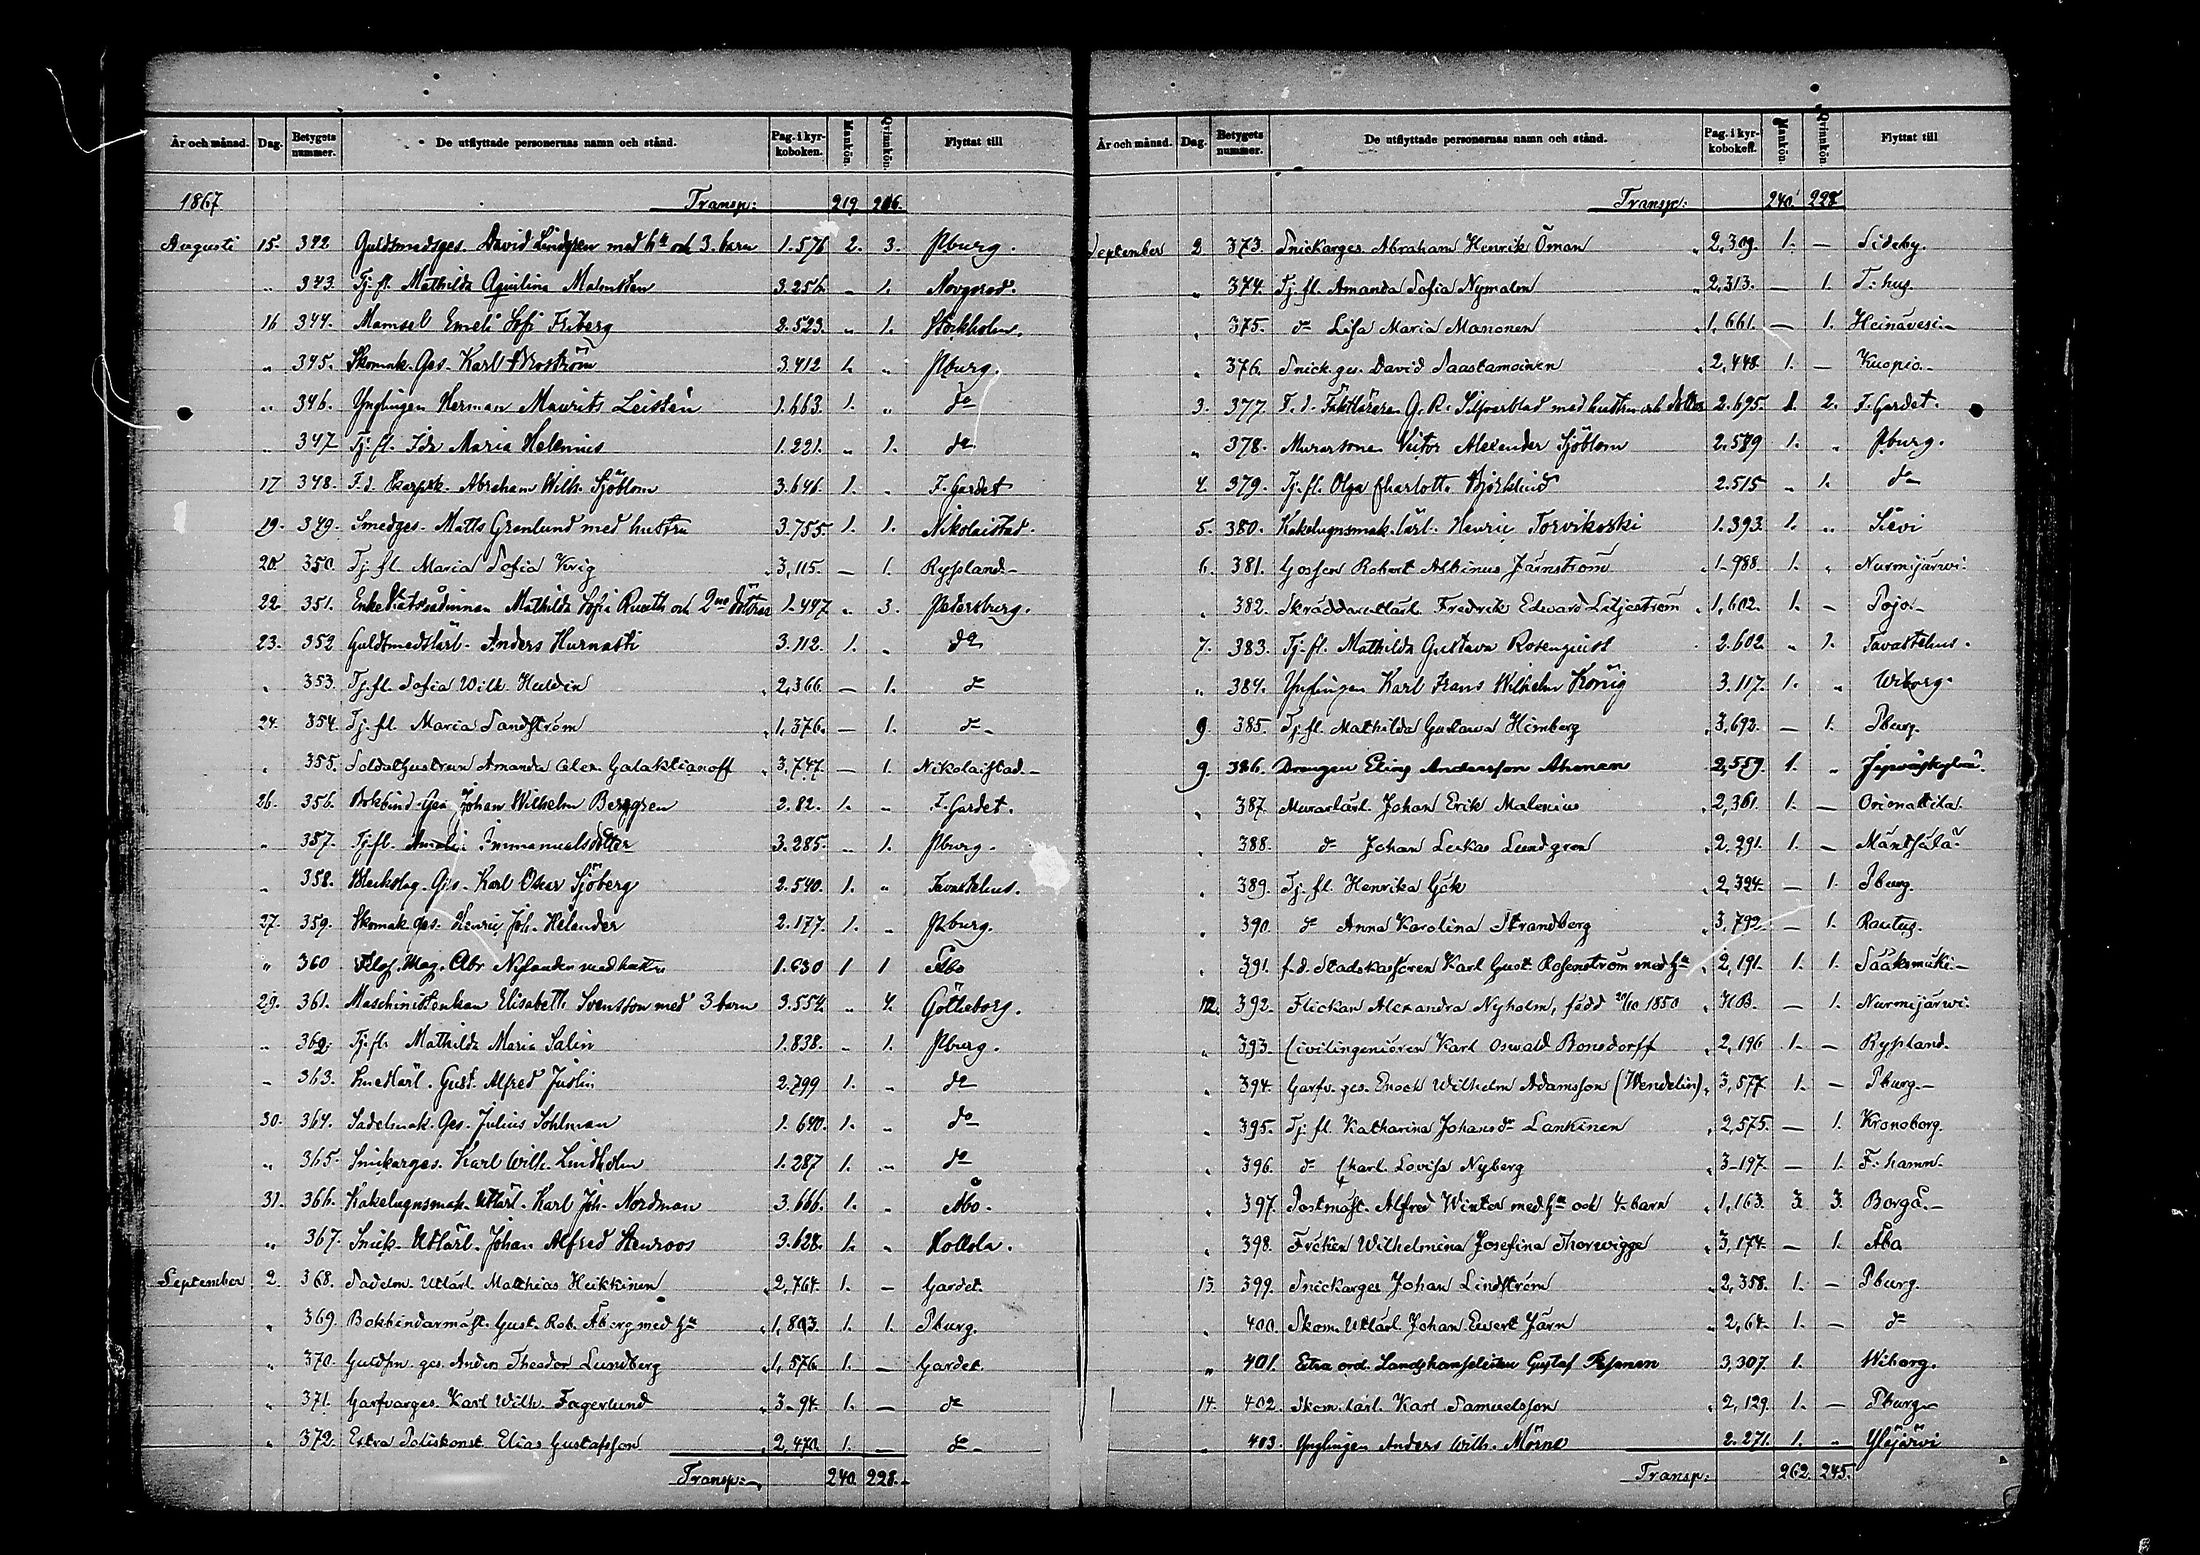 År och månad. Dag. Betygets nummer. De utflyttade personernas namn och stånd. Pag. i kyrkoboken. Mankön. Qvinnkön. Flyttat till
1867 Transp: 219 206.
Augusti 15. 342 Guldsmedsges. David Lindgren med h" och 3. barn 1.576 2. 3. Pburg.
" 343. Tj. fl. Mathilda Aquilina Malmsten 3.256. - 1. Novgorod.
16 344. Mamsel Emeli Sofi Friberg 2.523. " 1. Stockholm.
" 345. Skomak. Ges. Karl 3.412 1. " Pburg.
" 346. Ynglingen Herman Maurits Leistén 1.663. 1. " do
" 347 Tj. fl. Ida Maria Helenius 1.221. " 1. do
17 348. F.d. Abraham Wilh. Sjöblom 3.646. 1. " F. Gardet
19. 349. Smedges. Matts Grenlund med hustru 3.755. 1. 1. Nikolaistad.
20. 350. Tj. fl. Maria Sofia Krig 3,115. - 1. Ryssland.
22. 351. Enke Mathilda Sofia och 2ne döttrar 1.447. " 3. Petersburg.
23. 352 Guldsmedslärl. Anders Hurnasti 3.112. 1. " do
" 353. Tj. fl. Sofia Wilh. Huldin 2,366. - 1. do
24. 354. Tj. fl. Maria Sandström 1,376. - 1. do
" 355. Soldathustrun Amanda Alex. Galaktianoff 3,747. - 1. Nikolaistad.
26. 356. Bokbind. Ges Johan Wilhelm Berggren 2.82. 1. " F. Gardet.
" 357. Tj. fl. Amalia Immanuelsdotter 3.285. " 1. Pburg.
" 358. Bleckslag. Ges. Karl Oskar Sjöberg 2.540. 1. " Tavastehus.
27. 359. Skomak. ges. Henric Joh. Helander 2.177. 1. " Pburg.
" 360 Filos. Mag. Abr Nylander med hustru 1.630 1 1 Åbo
29. 361. Maschinistenkan Elisabeth Svensson med 3 barn 3.554. " 4. Götheborg.
" 362. Tj. fl. Mathilda Maria Salin 1.838. " 1. Pburg.
" 363. Smedlärl. Gust. Alfred Juslin 2.799 1. " do
30. 364. Sadelmak. Ges. Julius Sohlman 1.640. 1. " do
" 365. Snickarges. Karl Wilh. Lindholm 1.287 1. " do
31. 366. Kakelugnsmak. Utlärl. Karl Joh. Nordman 3.666. 1. " Åbo.
" 367. Snick. Utlärl. Johan Alfred Stenroos 3.628. 1. " Hollola.
September 2. 368. Sadelm. Utlärl. Matthias Heikkinen 2,764. 1. - Gardet.
" 369. Bokbindarmäst. Gust. Rob. Åberg med h" 1,803. 1. 1. Pburg.
" 370. Guldsm. ges. Anders Theodor Lundberg 1,576. 1. - Gardet.
" 371. Garfvarges. Karl Wilh. Fagerlund 3.94. 1. - do
" 372. Extra Poliskonst. Elias Gustafsson 2,470. 1. - do
Transp: 240. 228.
År och månad. Dag. Betygets nummer. De utflyttade personernas namn och stånd. Pag. i kyrkoboken. Mankön. Qvinnkön. Flyttat till
Transp: 240. 228.
September 2 373. Snickarges. Abraham Henrik Öman 2,309. 1. - Sideby.
" 374. Tj. fl. Amanda Sofia Nymalm 2,313. - 1. T:hus.
" 375. do Lisa Maria Manonen 1,661. - 1. Heinävesi.
" 376. Snick. ges. David Saastamoinen 2,448. 1. - Kuopio.
3. 377. F.d. G. R. Silfverblad med hustru och dotter 2.695. 1. 2. F. Gardet.
" 378. Murarsonen Victor Alexander Sjöblom 2.589 1. " Pburg.
4. 379. Tj. fl. Olga Charlotta Björklund 2.515 " 1. do
5. 380. Kakelugnsmak. lärl. Henric Torvikoski 1.393. 1. " Sievi
6. 381. Gossen Robert Albinus Järnström 1.988. 1. " Nurmijärwi.
" 382. Skräddareutlärl. Fredrik Edward Liljeström 1,602. 1. - Pojo.
7. 383. Tj. fl. Mathilda Gustava Rosenquist 2.602. " 1. Tavastehus.
" 384. Ynglingen Karl Frans Wilhelm König 3.117. 1. " Wiborg.
9. 385. Tj. fl. Mathilda Gustawa Heimberg 3,692. - 1. Pburg.
9. 386. Drengen Elias Andersson Ahonen 2,559. 1. "
" 387. Murarlärl. Johan Erik Malenius 2,361. 1. - Orimattila.
" 388. do Johan Lukas Lundgren 2,291. 1. - Mäntsälä.
" 389. Tj. fl. Henrika Gök 2,324. - 1. Pburg.
" 390. do Anna Karolina Strandberg 3,792. - 1. Rautus.
" 391. f.d. Stadskassören Karl Gust. Rosenström med h" 2,191. 1. 1. Sääksmäki.
12. 392. Flickan Alexandra Nyholm, född 20/10 1850 HB. - 1. Nurmijärwi.
" 393. Civilingeniören Karl Oswald Bonsdorff 2,196 1. - Ryssland.
" 394. Garfv. ges. Enoch Wilhelm Adamsson (Wendelin) 3,577. 1. - Pburg.
" 395. Tj. fl. Katharina Johansdr Lankinen 2,575. - 1. Kronoborg.
" 396. do Charl. Lovisa Nyberg 3.197. - 1. F:hamn.
" 397. Postmäst. Alfred Winter med h" och 4. barn 1,163. 3. 3. Borgå.
" 398. Fröken Wilhelmina Josefina Thorwigge 3,174. - 1. Åbo
13. 399. Snickarges Johan Lindström 2,358. 1. - Pburg.
" 400. Skom. Utlärl. Johan Ewert Järn 2,64. 1. - do
" 401. Extra ord. Landskanslisten Gustaf 3,307. 1. Wiborg.
14. 402. Skom. lärl. Karl Samuelsson 2,129. 1. - Pburg.
" 403. Ynglingen Anders Wilh. Mörne 2.271. 1. " Ylöjärvi
Transp: 262. 245.